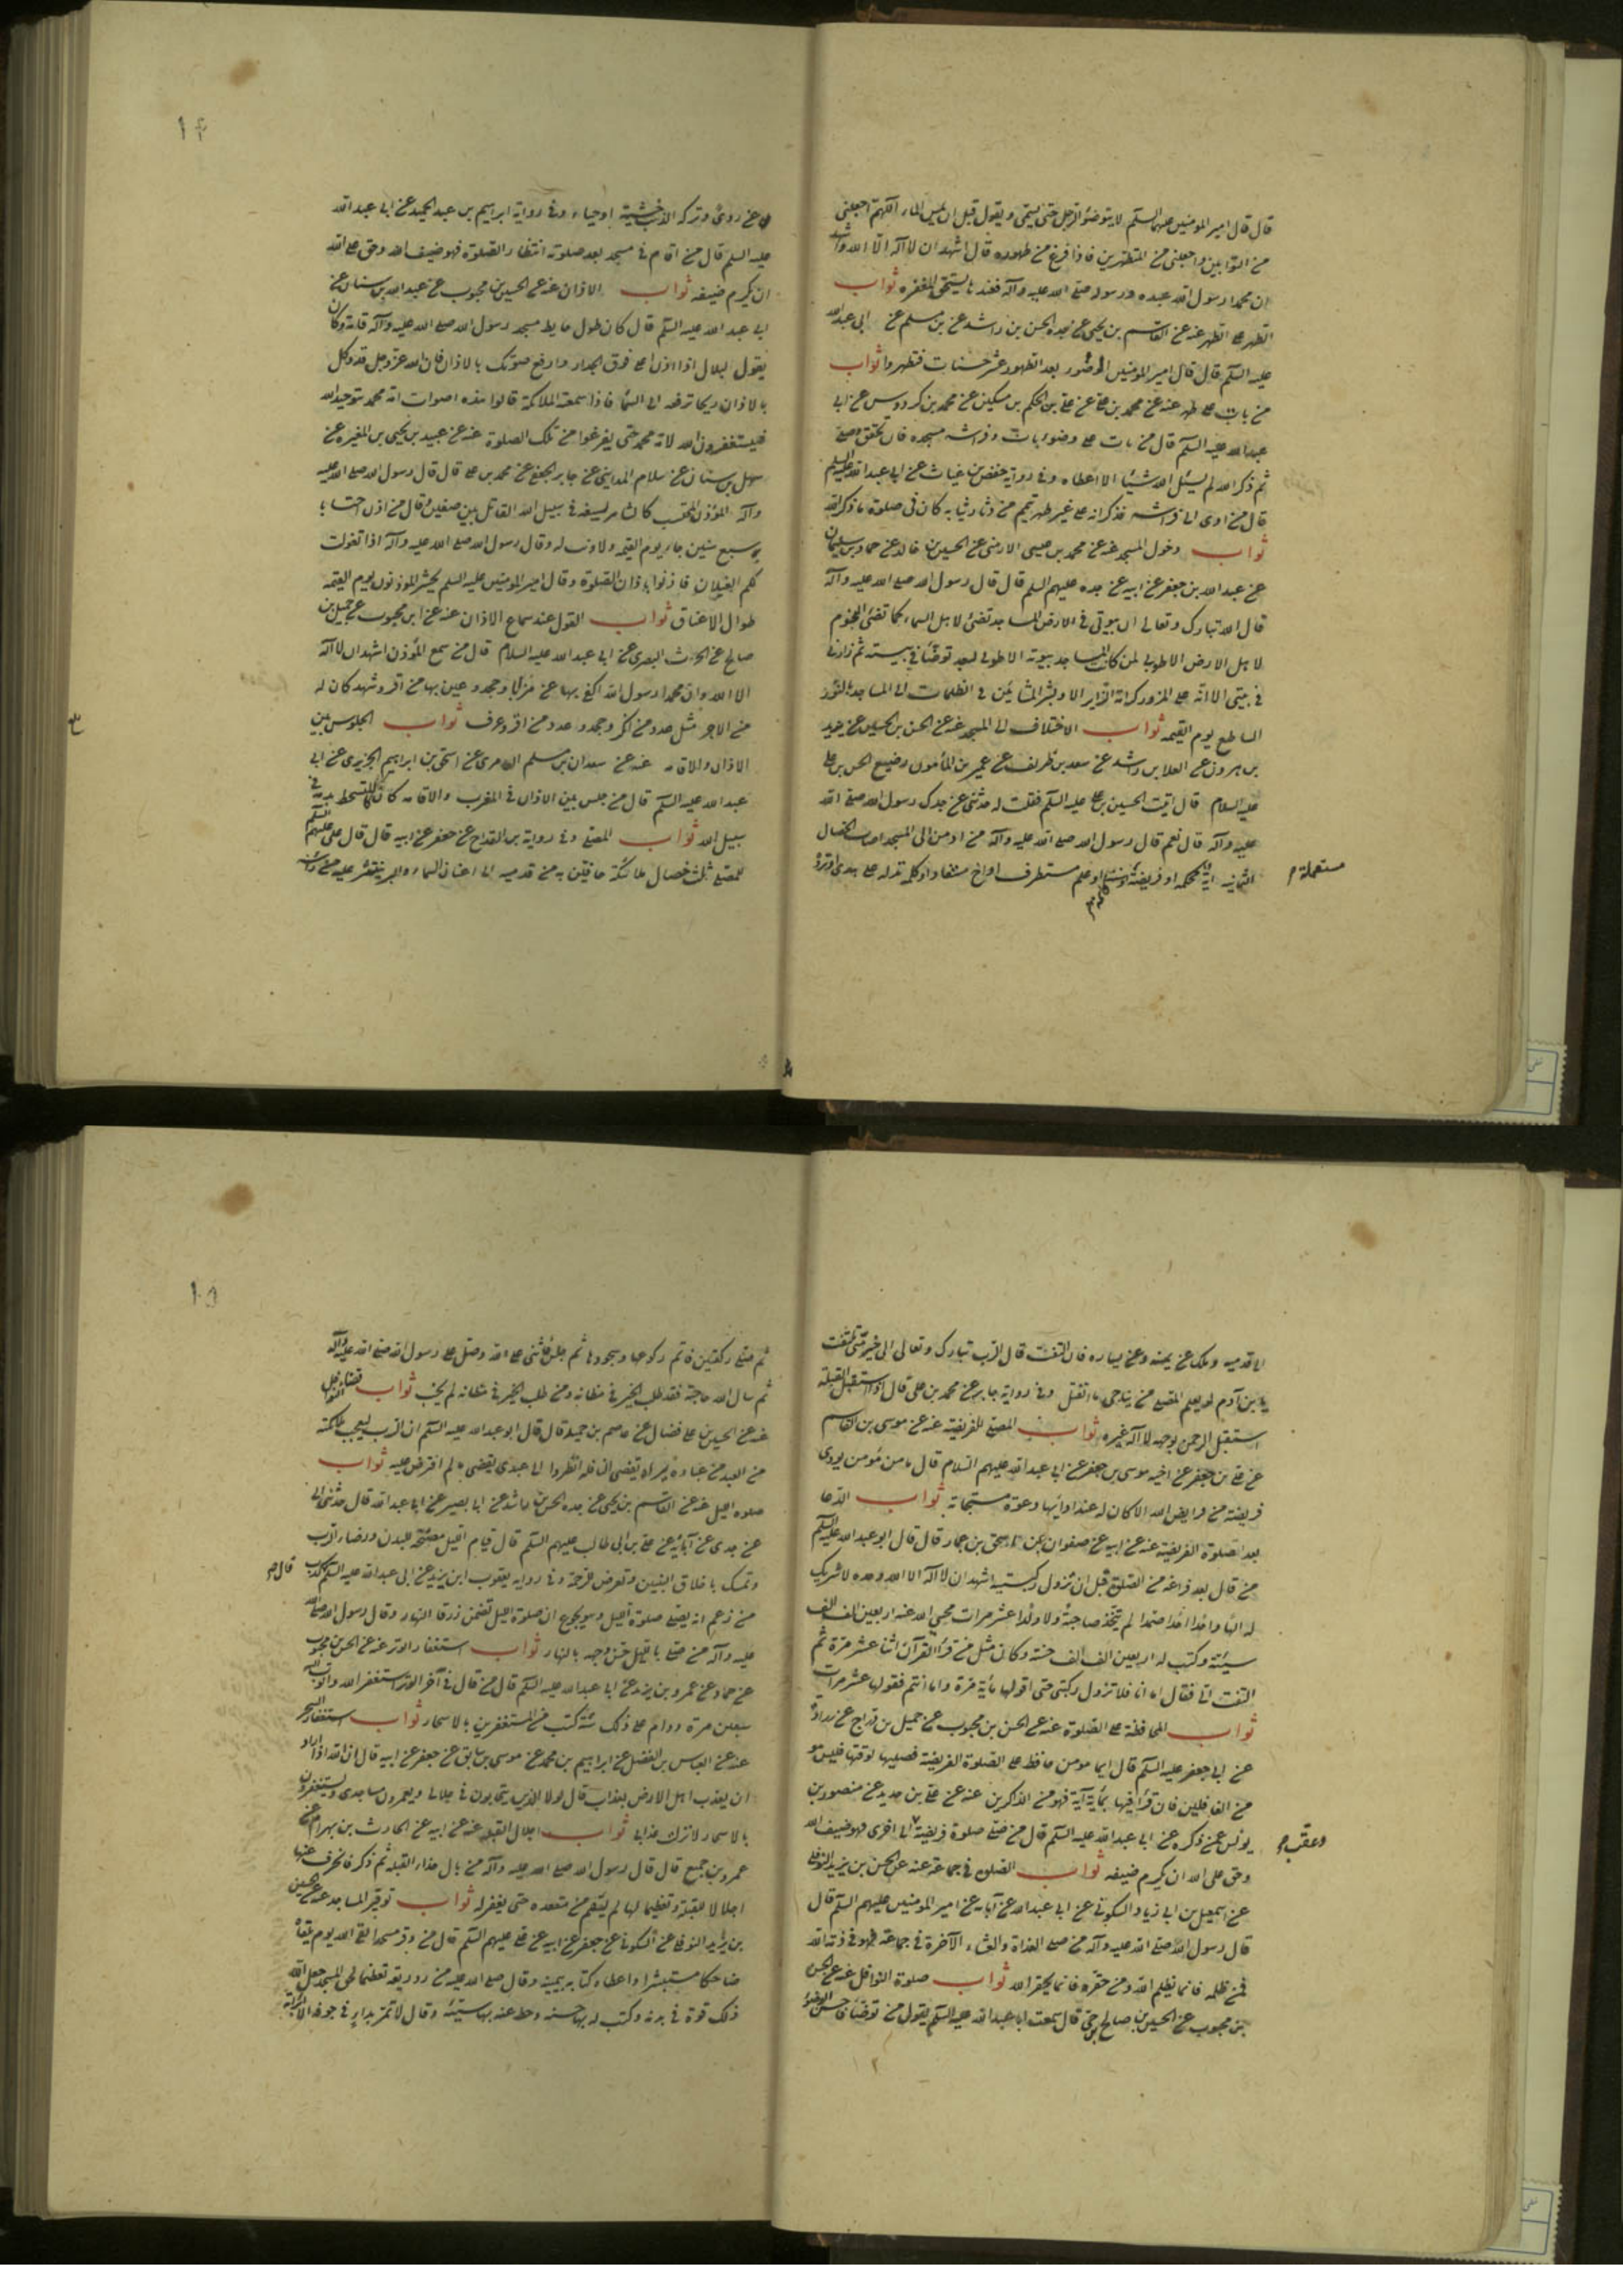 قال قال امير المومنين عليه السلم لا يتوضؤ الرجل حتى يسمى و يقول قبل ان يمس الماء اللهم اجعلنى
من التوابين واجعلنى من المتطهرين فاذا فرغ من طهوره قال اشهد ان لا اله الا الله واشهد
ان محمدا رسول الله عبده ورسوله صلى الله عليه وآله فعندها يستحق المغفره ثواب
التطهر على التطهر عنه عن القاسم بن يحيى عن جده الحسن بن راشد عن بن مسلم عن ابى عبد الله
عليه السلم قال قال امير المومنين الوضوء بعد الطهور عشر حسنات فتطهروا ثواب
من بات على طهر عنه عن محمد بن على عن على بن الحكم بن مسكين عن محمد بن كردوس عن ابى
عبد الله عليه السلم قال من بات على وضوء بات و فراشه مسجده فان تحقق وصلى
ثم ذكر الله لم يسئل الله شيئا الا اعطاه وفى رواية حفص بن غياث عن ابى عبد الله عليه السلم
قال من اوى الى فراشه فذكر انه على غير طهر تيمم من دثار ثيابه كان فى صلوة ما ذكر الله
ثواب دخول المسجد عنه عن محمد بن عيسى الارمنى عن الحسين بن خالد عن حماد بن سليمان
عن عبد الله بن جعفر عن ابيه عن جده عليهم السلم قال قال رسول الله صلى الله عليه وآله
قال الله تبارك وتعالى ان بيوتى فى الارض المساجد تضئ لاهل السماء كما تضئ النجوم
لاهل الارض الا طوبى لمن كانت المساجد بيوته الا طوبى لعبد توضئا فى بيته ثم زارنى
فى بيتى الا انه على المزور كرامة الزاير الا وبشر المشائين فى الظلمات الى المساجد بالنور
الساطع يوم القيمه ثواب الاختلاف الى المسجد عنه عن الحسن بن الحسين عن يزيد
بن هرون عن العلا بن راشد عن سعد بن طريف عن عمير بن المأمون رضيع الحسن بن على
عليه السلام قال اتيت الحسين بن على عليه السلم فقلت له حدثنى عن جدك رسول الله صلى الله
عليه وآله قال نعم قال رسول الله صلى الله عليه وآله من ادمن الى المسجد اصاب الخصال
الثمانيه آية محكمه او فريضة او علم مستطرف او اخ مستفاد او كلمه تدله على هدى او ترده
مستعملة
عن ردئ وتركه الذنب خشية او حياء وفى رواية ابراهيم بن عبد الحميد عن ابى عبد الله
عليه السلم قال من اقام فى مسجد بعد صلوته انتظار الصلوة فهو ضيف الله وحق على الله
ان يكرم ضيفه ثواب الاذان عنه عن الحسين بن محبوب عن عبد الله بن سنان عن
ابى عبد الله عليه السلم قال كان طول حايط مسجد رسول الله صلى الله عليه وآله قامة وكان
يقول لبلال اذا اذن اعل فوق الجدار وارفع صوتك بالاذان فان الله عز وجل قد وكل
بالاذان ريحا ترفعه الى السماء فاذا سمعته الملائكة قالوا هذه اصوات امة محمد بتوحيد الله
فيستغفرون الله لامة محمد حتى يفرغوا من تلك الصلوة عنه عن عبيد بن يحيى بن المغيره عن
سهل بن سنان عن سلام المداينى عن جابر الجعفى عن محمد بن على قال قال رسول الله صلى الله عليه
وآله المؤذن المحتسب كالشاهر بسيفه فى سبيل الله القاتل بين صفين وقال من اذن احتسابا
سبع سنين جاء يوم القيمه ولا ذنب له وقال رسول الله صلى الله عليه وآله اذا تغولت
لكم الغيلان فاذنوا باذان الصلوة وقال امير المومنين عليه السلم يحشر المؤذنون يوم القيمه
طوال الاعناق ثواب القول عند سماع الاذان عنه عن ابن محبوب عن جميل بن
صالح عن الحرث البصرى عن ابى عبد الله عليه السلام قال من سمع المؤذن اشهد ان لا اله
الا الله وان محمدا رسول الله اكفى بها عن من ابا وجحد واعين بها من اقر وشهد كان له
من الاجر مثل عدد من انكر وجحد وعدد من اقر وعرف ثواب الجلوس بين
الاذان والاقامه عنه عن سعدان بن مسلم العامرى عن اسحق بن ابراهيم الجزيرى عن ابى
عبد الله عليه السلم قال من جلس بين الاذان فى المغرب والاقامه كان كالمتشحط بدمه فى
سبيل الله ثواب المصلى وفى رواية بن القداح عن جعفر عن ابيه قال قال على عليهم السلم
للمصلى ثلث خصال ملائكة حافين به من قدميه الى اعنان السماء والبر ينتثر عليه من راسه
الى قدميه وملك عن يمينه وعن يساره فان التفت قال الرب تبارك وتعالى الى خير منى تلتفت
يا بن آدم لو يعلم المصلى من يناجى ما انفتل وفى رواية جابر عن محمد بن على قال اذا استقبل القبلة
استقبل الرحمن بوجهه لا اله غيره ثواب المصلى للفريضة عنه عن موسى بن القاسم
عن على بن جعفر عن اخيه موسى بن جعفر عن ابى عبد الله عليهم السلام قال ما من مؤمن يودى
فريضة من فرايض الله الا كان له عند ادائها دعوة مستجابة ثواب الدعا
بعد الصلوة الفريضة عنه عن ابيه عن صفوان عن اسحق بن عمار قال قال ابو عبد الله عليه السلم
من قال بعد فراغه من الصلوة قبل ان تزول ركبتيه اشهد ان لا اله الا الله وحده لا شريك
له الها واحدا احدا صمدا لم يتخذ صاحبة ولا ولدا عشر مرات محى الله عنه اربعين الف الف
سيئة وكتب له اربعين الف الف حسنة وكان مثل من قرأ القرآن اثنا عشر مرة ثم
التفت الى فقال اما انا فلا تزول ركبتى حتى اقولها مأية مرة واما انتم فقولوها عشر مرات
ثواب المحافظة على الصلوة عنه عن الحسن بن محبوب عن جميل بن دراج عن زرارة
عن ابى جعفر عليه السلم قال ايما مومن حافظ على الصلوة الفريضة فصليها لوقتها فليس هو
من الغافلين فان قرأ فيها بمأية آية فهو من الذاكرين عنه عن على بن حديد عن منصور بن
يونس عمن ذكره عن ابى عبد الله عليه السلم قال من صلى صلوة فريضة الى اخرى فهو ضيف الله
وعقب
وحق على الله ان يكرم ضيفه ثواب الصلوه فى جماعة عنه عن الحسن بن يزيد النوفلى
عن اسمعيل بن ابى زياد السكونى عن ابى عبد الله عن آبائه عن امير المومنين عليهم السلم قال
قال رسول الله صلى الله عليه وآله من صلى الغداة والعشاء الآخرة فى جماعة فهو فى ذمة الله
فمن ظلمه فانما يظلم الله ومن حقره فانما يحقر الله ثواب صلوة النوافل عنه عن الحسن
بن محبوب عن الحسين بن صالح بن حى قال سمعت ابا عبد الله عليه السلم يقول من توضئا فاحسن الوضوء
ثم صلى ركعتين فاتم ركوعها وسجودها ثم جلس فاثنى على الله وصلى على رسول الله صلى الله عليه وآله
ثم سال الله حاجة فقد طلب الخير فى مظانه ومن طلب الخير فى مظانه لم يخب ثواب قضاء النوافل
عنه عن الحسين بن على فضال عن عاصم بن حميد قال قال ابو عبد الله عليه السلم ان الرب ليعجب ملائكته
من العبد من عباده يراه يقضى النافله انظروا الى عبدى يقضى ما لم افترض عليه ثواب
صلوه الليل عنه عن القاسم بن يحيى عن جده الحسن بن راشد عن ابى بصير عن ابى عبد الله قال حدثنى ابى
عن جدى عن آبائه عن على بن ابى طالب عليهم السلم قال قيام الليل مصحة للبدن ورضاء الرب
وتمسك باخلاق النبيين وتعرض لرحمة وفى روايه يعقوب ابن يزيد عن ابى عبد الله عليه السلم كذب
قال
من زعم انه يصلى صلوة الليل وهو يجوع ان صلوة الليل تضمن رزق النهار وقال رسول الله صلى الله
عليه وآله من صلى بالليل حسن وجهه بالنهار ثواب استغفار الوتر عنه عن الحسن بن محبوب
عن حماد عن عمرو بن يزيد عن ابى عبد الله عليه السلم قال من قال فى آخر الوتر استغفر الله واتوب اليه
سبعين مرة ودام على ذلك سنة كتب من المستغفرين بالاسحار ثواب استغفار السحر
عنه عن العباس بن الفضل عن ابراهيم بن محمد عن موسى بن سابق عن جعفر عن ابيه قال ان الله اذا اراد
ان يعذب اهل الارض بعذاب قال لولا الذين يتحابون فى جلالى ويعمرون مساجدى ويستغفرون
بالاسحار لانزلت عذابى ثواب اجلال القبله عنه عن ابيه عن الحارث بن بهرام عن
عمرو بن جميع قال قال رسول الله صلى الله عليه وآله من بال حذاء القبله ثم ذكر فانحرف عنها
اجلالا للقبلة وتعظيما لها لم يقم من مقعده حتى يغفر له ثواب توقير المساجد عنه عن الحسين
بن يزيد النوفلى عن السكونى عن جعفر عن ابيه عن على عليهم السلم قال من وقر مسجدا لقى الله يوم يلقاه
ضاحكا مستبشرا واعطاه كتابه بيمينه وقال صلى الله عليه من رد ريقه تعظيما لحق المسجد جعل الله
ذلك قوة فى بدنه وكتب له بها حسنه وحط عنه بها سيئة وقال لا تمر بداء فى جوفه الا ابراته